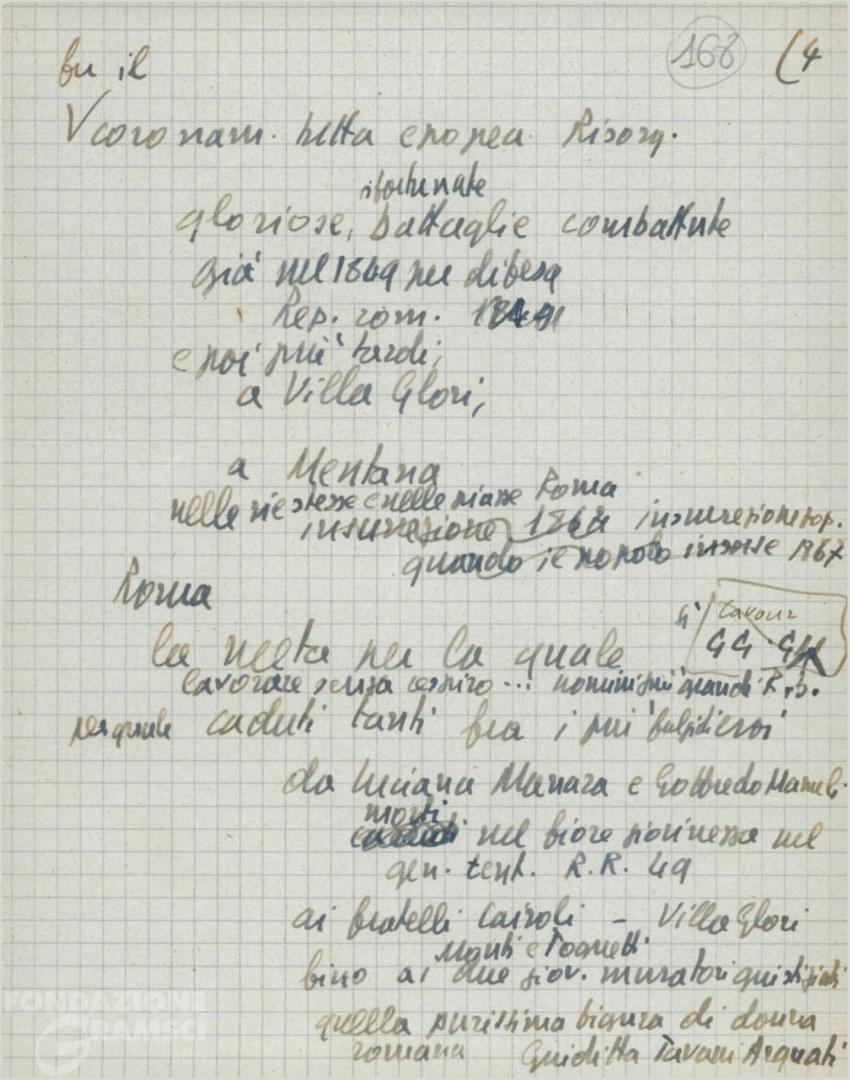 168 (4
fu il
V coronam. della epopea Risorg.
sfortunate
gloriose, battaglie combattute
già nel 1849 per difesa
Rep. rom. 1849
e poi più tardi,
a Villa Glori,
a Mentana
nelle vie stesse e nelle piazze Roma
insurrezione 1867 insurrezione pop.
quando il popolo insorse 1867
Roma
Cavour
la meta per la quale GG. GM
lavorare senza respiro... uomini più grandi Ris.
per quale caduti tanti fra i più fulgidi eroi
da Luciano Manara e Goffredo Mameli
morti
nel fiore giovinezza nel
gen. tent. R.R. 49
ai fratelli Cairoli – Villa Glori
Monti e Tognetti
fino ai due giov. muratori giustiziati
quella purissima figura di donna
romana Giuditta Tavani Arquati
FONDAZIONE
GRAMSCI